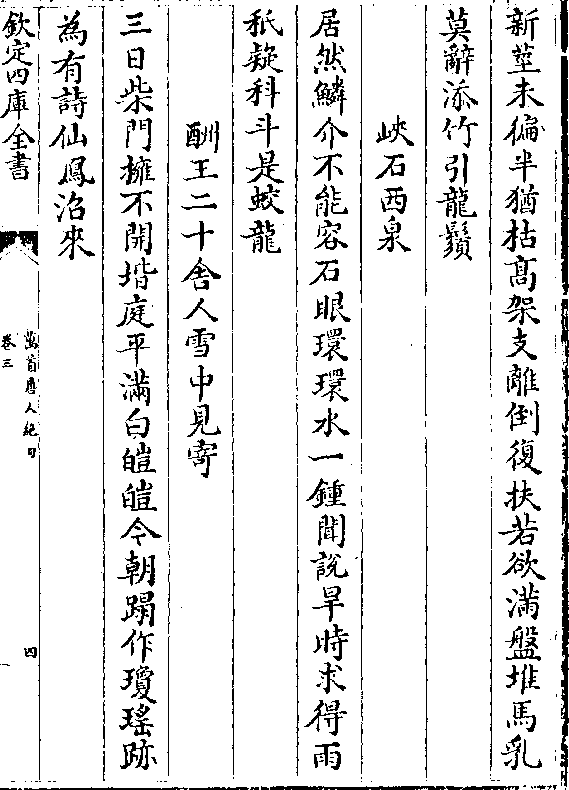 新莖未徧半猶枯髙架支離倒復扶若欲滿盤堆馬乳
莫辭添竹引龍鬚
峽石西泉
居然鱗介不能容石眼環環水一鍾聞說旱時求得雨
秖疑科斗是蛟龍
酬王二十舍人雪中見寄
三日柴門擁不開堦庭平滿白皚皚今朝蹋作瓊瑤跡
為有詩仙鳳沼來
欽定四庫全書
萬首唐人絶句
卷三
四